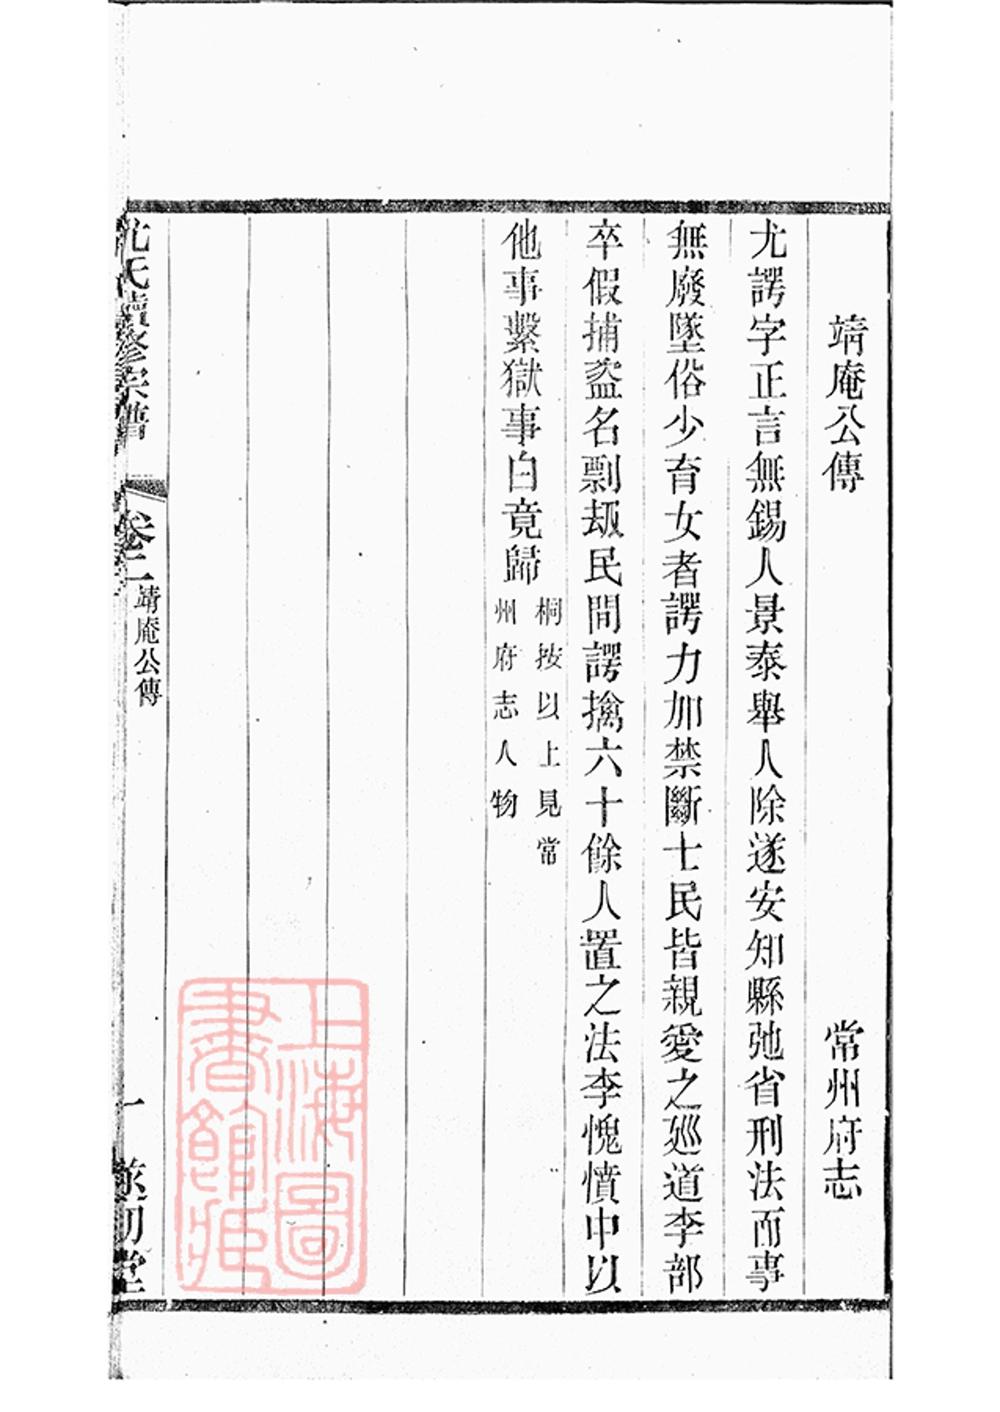 靖庵公傳　常州府志
尤諤字正言無錫人景泰舉人除遂安知縣弛省刑法而事
無廢墜俗少育女者諤力加禁斷士民皆親愛之廵道李部
卒假捕盗名剽刼民間諤擒六十餘人置之法李愧憤中以
他事繫獄事白竟歸
桐按以上見常
州府志人物
尤氏續修宗譜　卷二　靖庵公傳　一　遂初堂
上海圖
書館藏